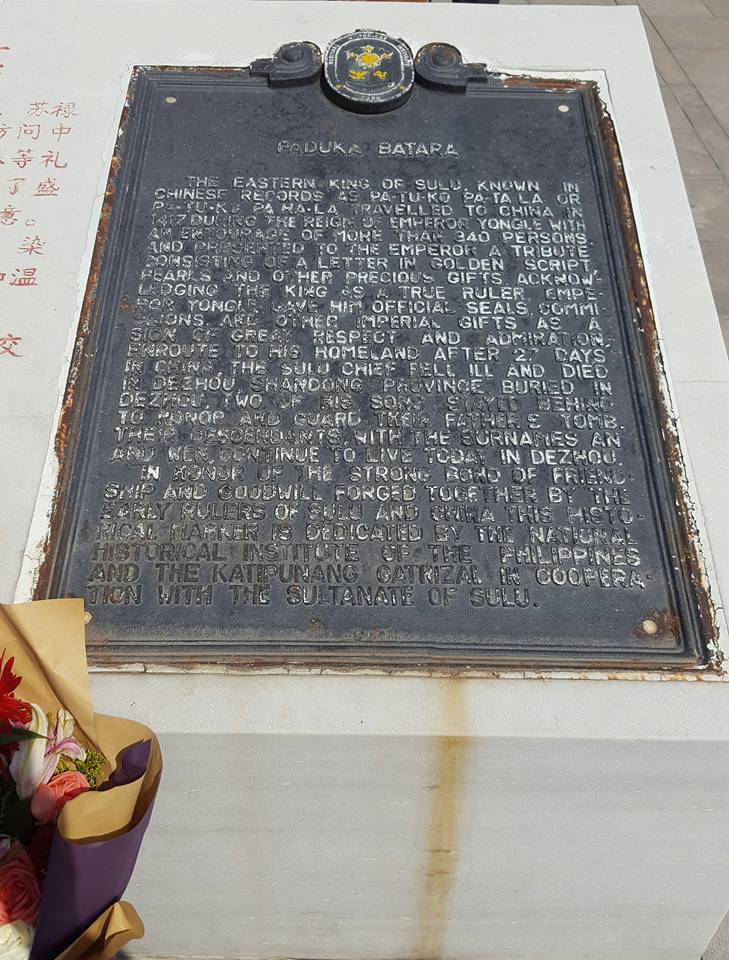 苏禄
访问中
等礼
了盛
染
温
交
PADUKA BATARA
THE EASTERN KING OF SULU, KNOWN IN
CHINESE RECORDS AS PA-TU-KO PA-TA-LA OR
PA-TU-KO PA-HA-LA TRAVELLED TO CHINA IN
1417 DURING THE REIGN OF EMPEROR YONGLE WITH
AN ENTOURAGE OF MORE THAN 340 PERSONS.
AND PRESENTED TO THE EMPEROR A TRIBUTE
CONSISTING OF A LETTER IN GOLDEN SCRIPT
PEARLS AND OTHER PRECIOUS GIFTS ACKNOW-
LEDGING THE KING AS A TRUE RULER EMPE-
ROR YONGLE GAVE HIM OFFICIAL SEALS, COMMI-
SIONS AND OTHER IMPERIAL GIFTS AS A
SIGN OF GREAT RESPECT AND ADMIRATION.
ENROUTE TO HIS HOMELAND AFTER 27 DAYS
IN CHINA, THE SULU CHIEF FELL ILL AND DIED
IN DEZHOU SHANDONG PROVINCE BURIED IN
DEZHOU, TWO OF HIS SONS STAYED BEHIND
TO HONOR AND GUARD THEIR FATHER'S TOMB.
THEIR DESCENDANTS, WITH THE SURNAMES AN
AND WEN, CONTINUE TO LIVE TODAY IN DEZHOU.
IN HONOR OF THE STRONG BOND OF FRIEND-
SHIP AND GOODWILL FORGED TOGETHER BY THE
EARLY RULERS OF SULU AND CHINA THIS HISTO-
RICAL MARKER IS DEDICATED BY THE NATIONAL
HISTORICAL INSTITUTE OF THE PHILIPPINES
AND THE KATIPUNANG GATRIZAL IN COOPERA-
TION WITH THE SULTANATE OF SULU.